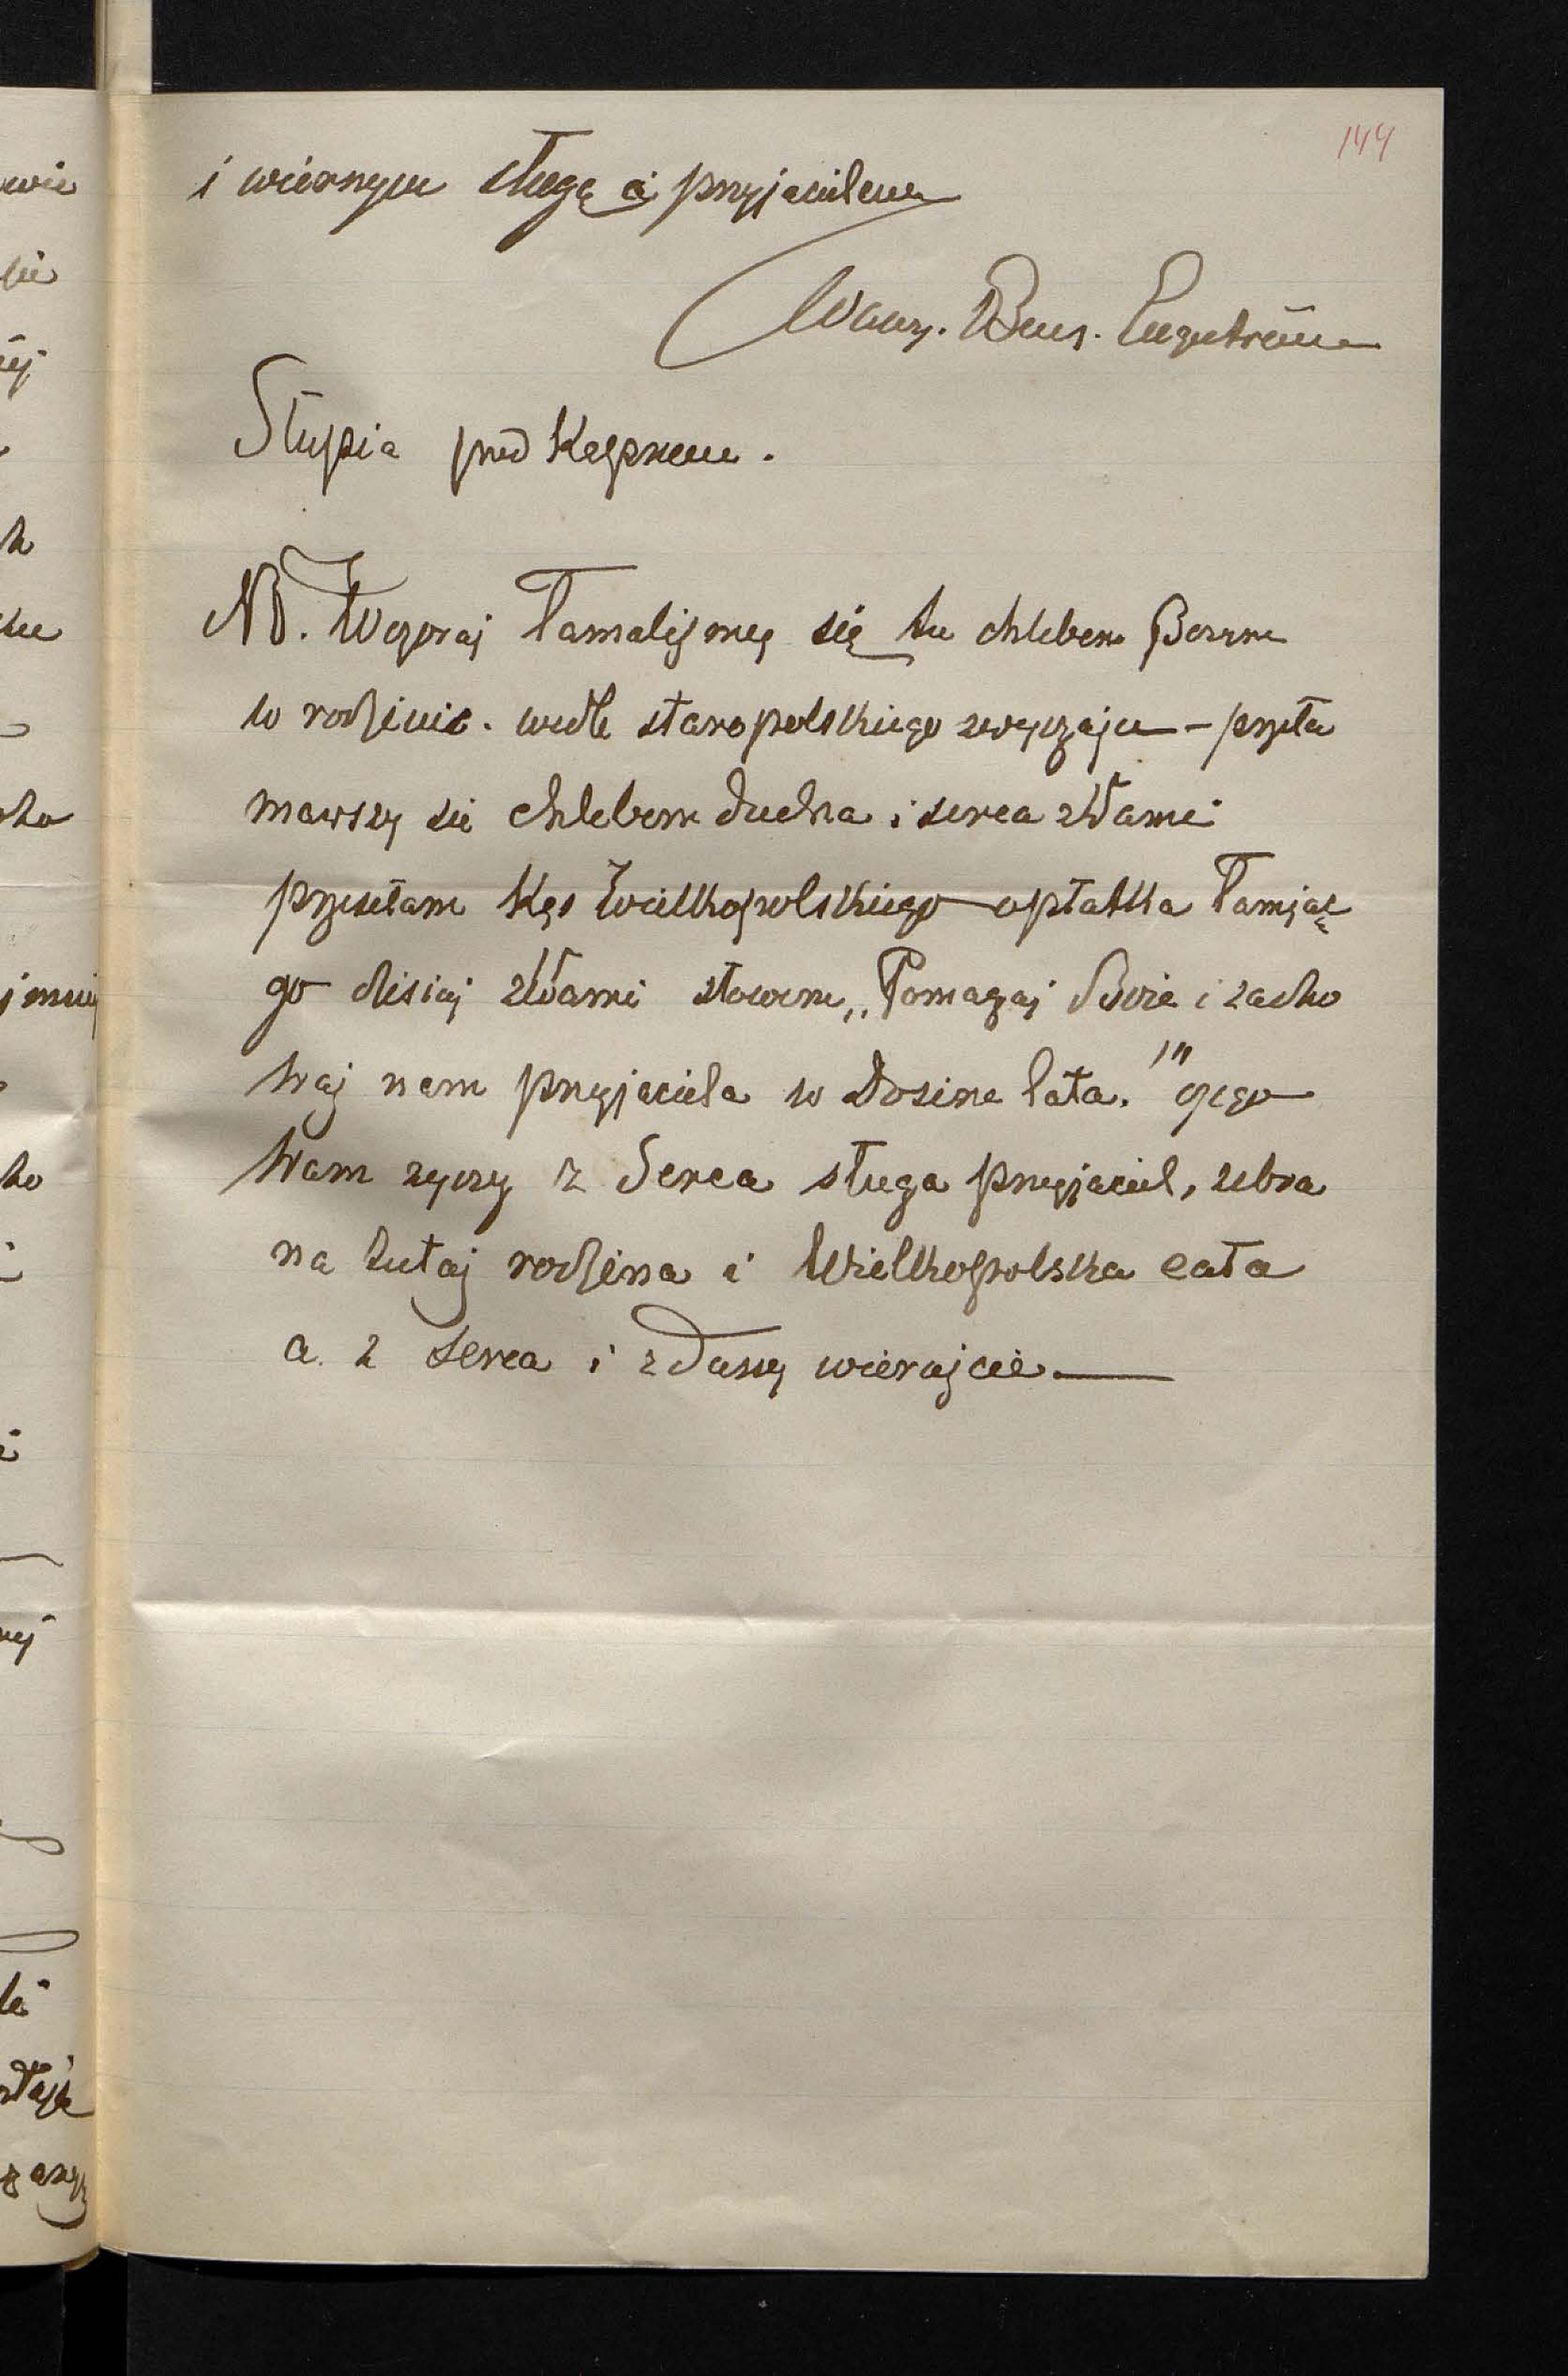 144
i wiernym sługą i przyjacielem
Wawrz. Benz. Engeström
Słupia pod Kępnem.
NB. Wczoraj łamaliśmy się tu chlebem Bożym
w rodzinie. wedle staropolskiego zwyczaju – przeła
mawszy sie chlebem ducha i serca z Wami
przesełam kęs wielkopolskiego opłatka łamiąc
go disiaj z Wami słowem „Pomagaj Boże i zacho
waj nam przyjaciela w dosine lata!" czego
Wam zyczy z Serca sługa przyjaciel, zebra
na tutaj rodzina i Wielkopolska cała
a z serca i z duszy wierajcie —